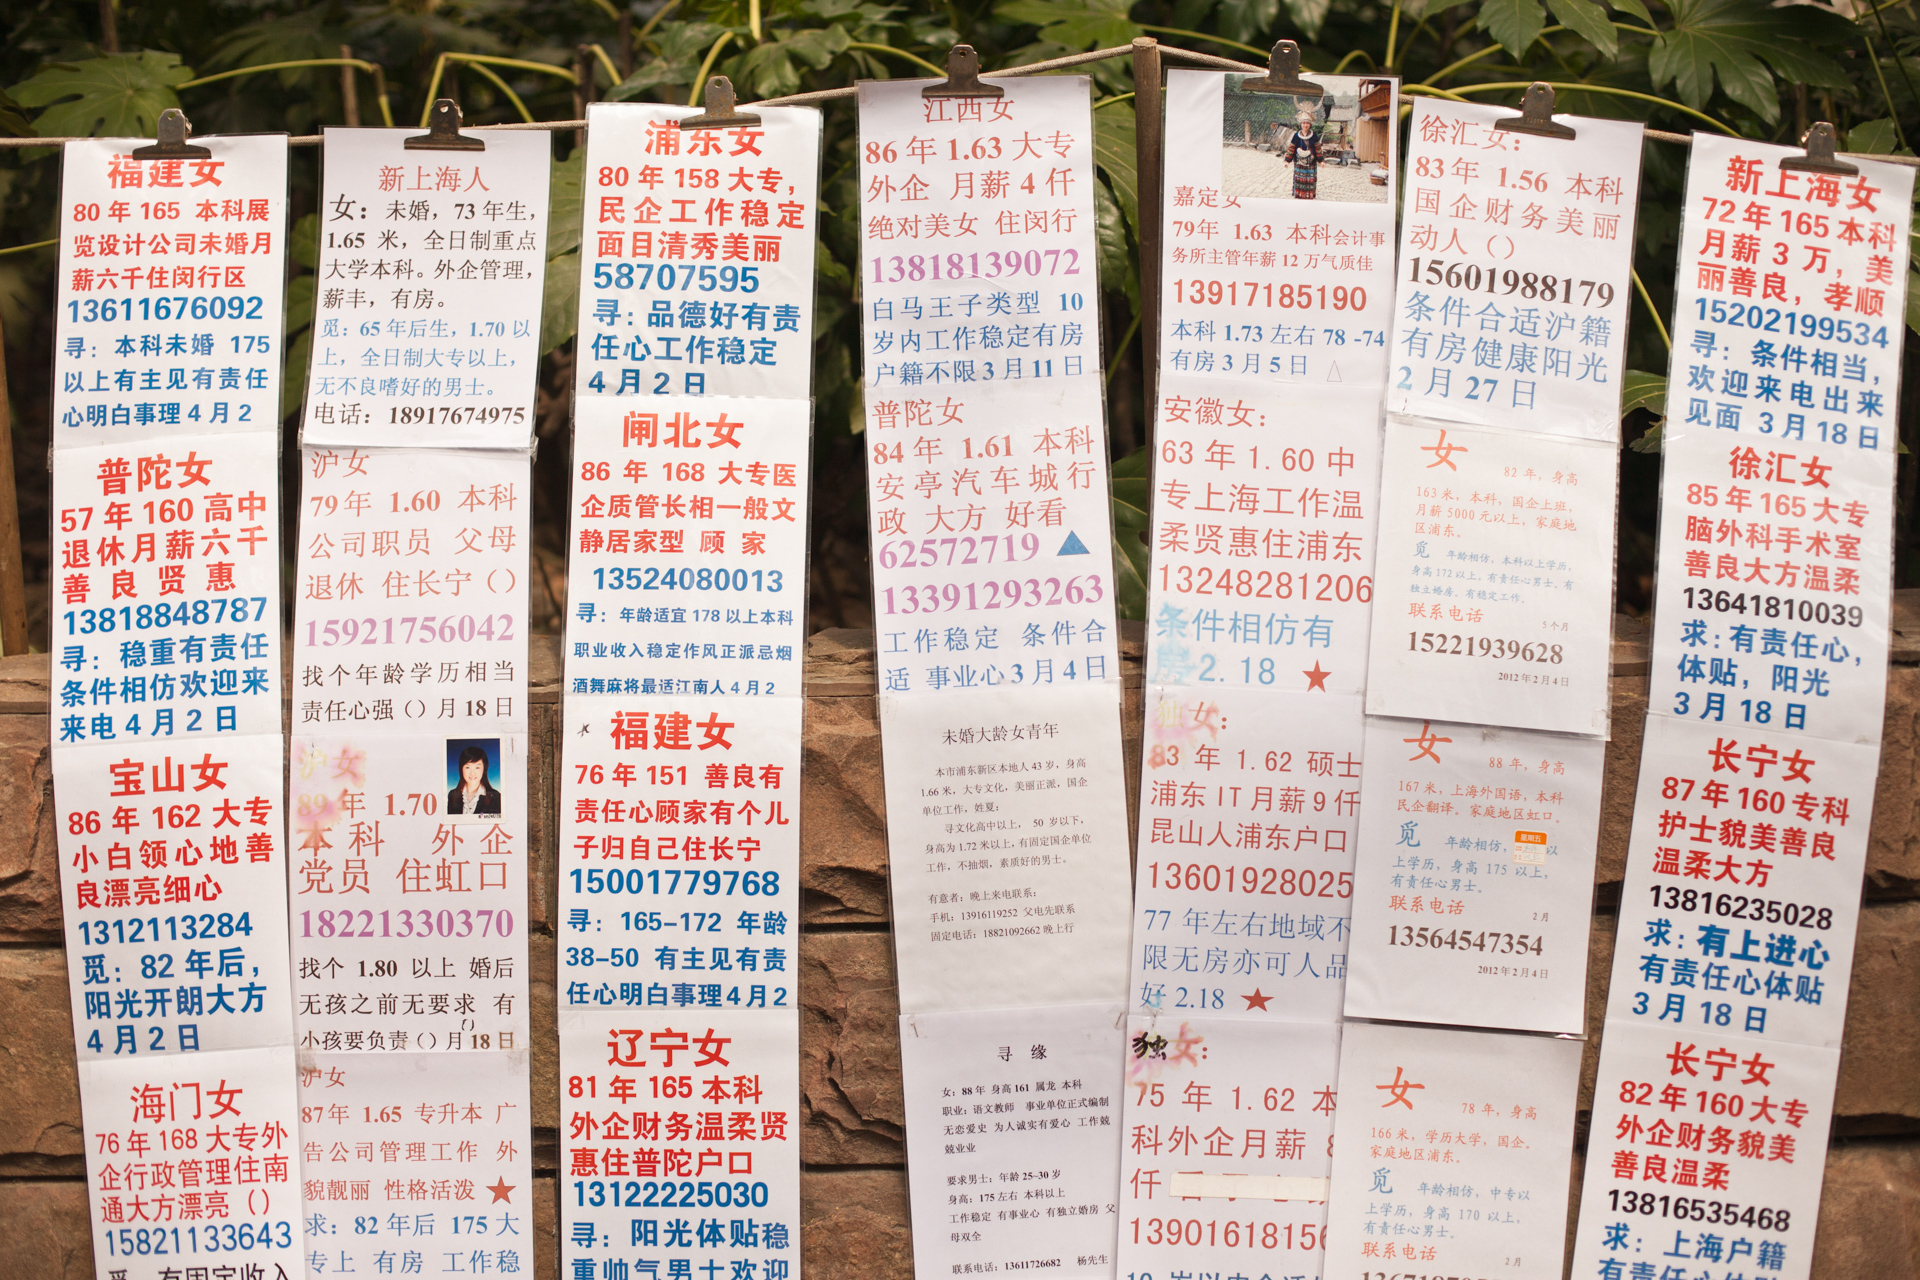 福建女
80年165 本科展
览设计公司未婚月
薪六千住闵行区
13611676092
寻：本科未婚 175
以上有主见有责任
心明白事理4月2
普陀女
57年160高中
退休月薪六千
善良贤惠
13818848787
寻：稳重有责任
条件相仿欢迎来
来电4月2日
宝山女
86年162大专
小白领心地善
良漂亮细心
1312113284
觅：82年后，
阳光开朗大方
4月2日
海门女
76年168大专外
企行政管理住南
通大方漂亮（）
15821133643
觅 有固定收入
新上海人
女：未婚，73年生，
1.65 米，全日制重点
大学本科。外企管理，
薪丰，有房。
觅：65年后生，1.70以
上，全日制大专以上，
无不良嗜好的男士。
电话：18917674975
沪女
79年 1.60 本科
公司职员 父母
退休 住长宁（）
15921756042
找个年龄学历相当
责任心强（）月18日
沪女
89年 1.70
本科 外企
党员 住虹口
18221330370
找个 1.80 以上 婚后
无孩之前无要求 有
小孩要负责（）月18日
沪女
87年 1.65 专升本 广
告公司管理工作 外
貌靓丽 性格活泼 ★
求：82年后 175大
专上 有房 工作稳
浦东女
80年158大专，
民企工作稳定
面目清秀美丽
58707595
寻：品德好有责
任心工作稳定
4月2日
闸北女
86年168大专医
企质管长相一般文
静居家型 顾 家
13524080013
寻：年龄适宜178以上本科
职业收入稳定作风正派忌烟
酒舞麻将最适江南人4月2
福建女
76年151 善良有
责任心顾家有个儿
子归自己住长宁
15001779768
寻：165-172 年龄
38-50 有主见有责
任心明白事理4月2
辽宁女
81年165本科
外企财务温柔贤
惠住普陀户口
13122225030
寻：阳光体贴稳
重帅气男士欢迎
江西女
86年1.63大专
外企 月薪4仟
绝对美女 住闵行
13818139072
白马王子类型 10
岁内工作稳定有房
户籍不限3月11日
普陀女
84年 1.61 本科
安亭汽车城行
政 大方 好看
62572719 ▲
13391293263
工作稳定 条件合
适 事业心3月4日
未婚大龄女青年
本市浦东新区本地人43岁，身高
1.66米，大专文化，美丽正派，国企
单位工作，姓夏；
寻文化高中以上， 50岁以下，
身高为1.72米以上，有固定国企单位
工作，不抽烟，素质好的男士。
有意者：晚上来电联系：
手机：13916119252 父电先联系
固定电话：18821092662晚上行
寻 缘
女：88年 身高161 属龙 本科
职业：语文教师 事业单位正式编制
无恋爱史 为人诚实有爱心 工作兢
兢业业
要求男士：年龄25-30岁
身高：175左右 本科以上
工作稳定 有事业心 有独立婚房 父
母双全
联系电话：13611726682 杨先生
嘉定女
79年 1.63 本科会计事
务所主管年薪12万气质佳
13917185190
本科1.73左右78-74
有房3月5日 △
安徽女：
63年1.60中
专上海工作温
柔贤惠住浦东
13248281206
条件相仿有
房2.18 ★
独女：
83年1.62硕士
浦东IT月薪9仟
昆山人浦东户口
13601928025
77年左右地域不
限无房亦可人品
好2.18 ★
独女：
75年1.62本
科外企月薪8
仟
1390161815
徐汇女：
83年 1.56 本科
国企财务美丽
动人（）
15601988179
条件合适沪籍
有房健康阳光
2月27日
女
82年，身高
163米，本科，国企上班，
月薪5000元以上，家庭地
区浦东。
觅 年龄相仿，本科以上学历，
身高172以上，有责任心男士，有
独立婚房，有稳定工作。
联系电话
5个月
15221939628
2012年2月4日
女
88年，身高
167米，上海外国语，本科
民企翻译。家庭地区虹口。
觅 年龄相仿，
星期五
以
上学历，身高 175 以上，
有责任心男士。
联系电话
2月
13564547354
2012年2月4日
女
78年，身高
166米，学历大学，国企。
家庭地区浦东。
觅 年龄相仿，中专以
上学历，身高170以上，
有责任心男士。
联系电话
2月
新上海女
72年165本科
月薪3万，美
丽善良，孝顺
15202199534
寻：条件相当，
欢迎来电出来
见面 3月18日
徐汇女
85年165大专
脑外科手术室
善良大方温柔
13641810039
求：有责任心，
体贴，阳光
3月18日
长宁女
87年160专科
护士貌美善良
温柔大方
13816235028
求：有上进心
有责任心体贴
3月18日
长宁女
82年160大专
外企财务貌美
善良温柔
13816535468
求：上海户籍
有责任心体